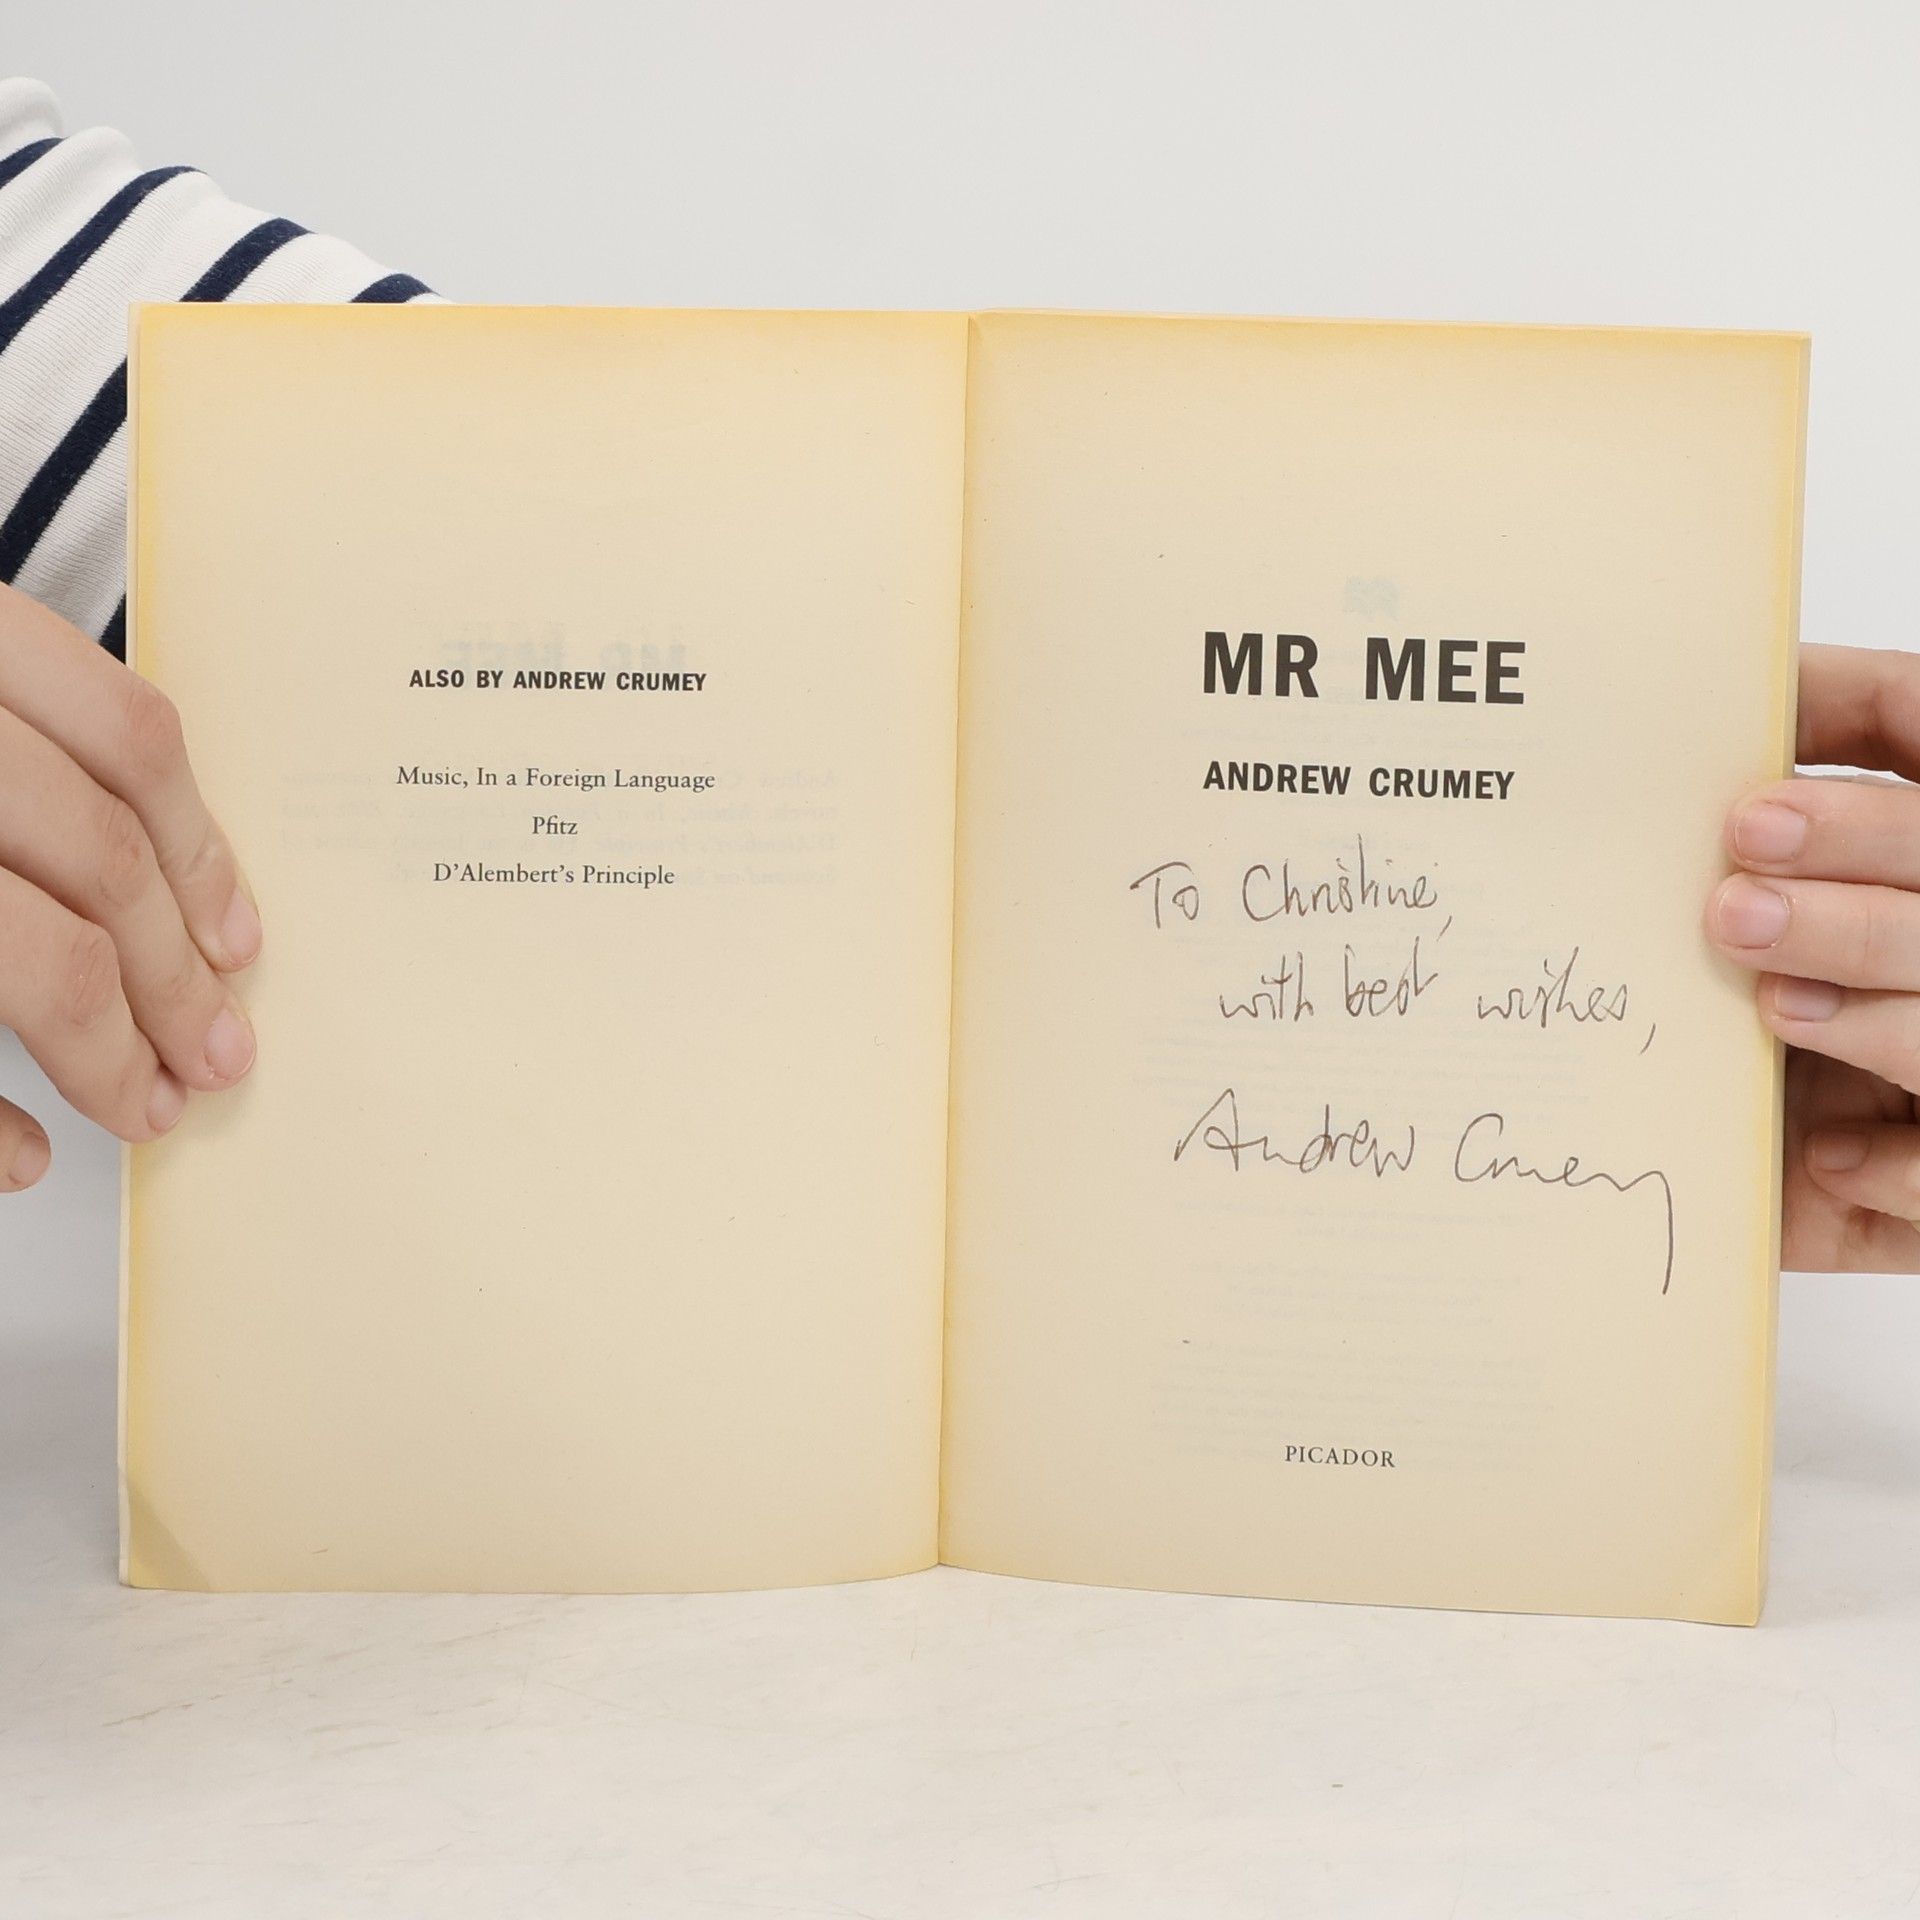 ALSO BY ANDREW CRUMEY
Music, In a Foreign Language
Pfitz
D'Alembert's Principle
MR MEE
ANDREW CRUMEY
To Christine,
with best wishes,
Andrew Crumey
PICADOR